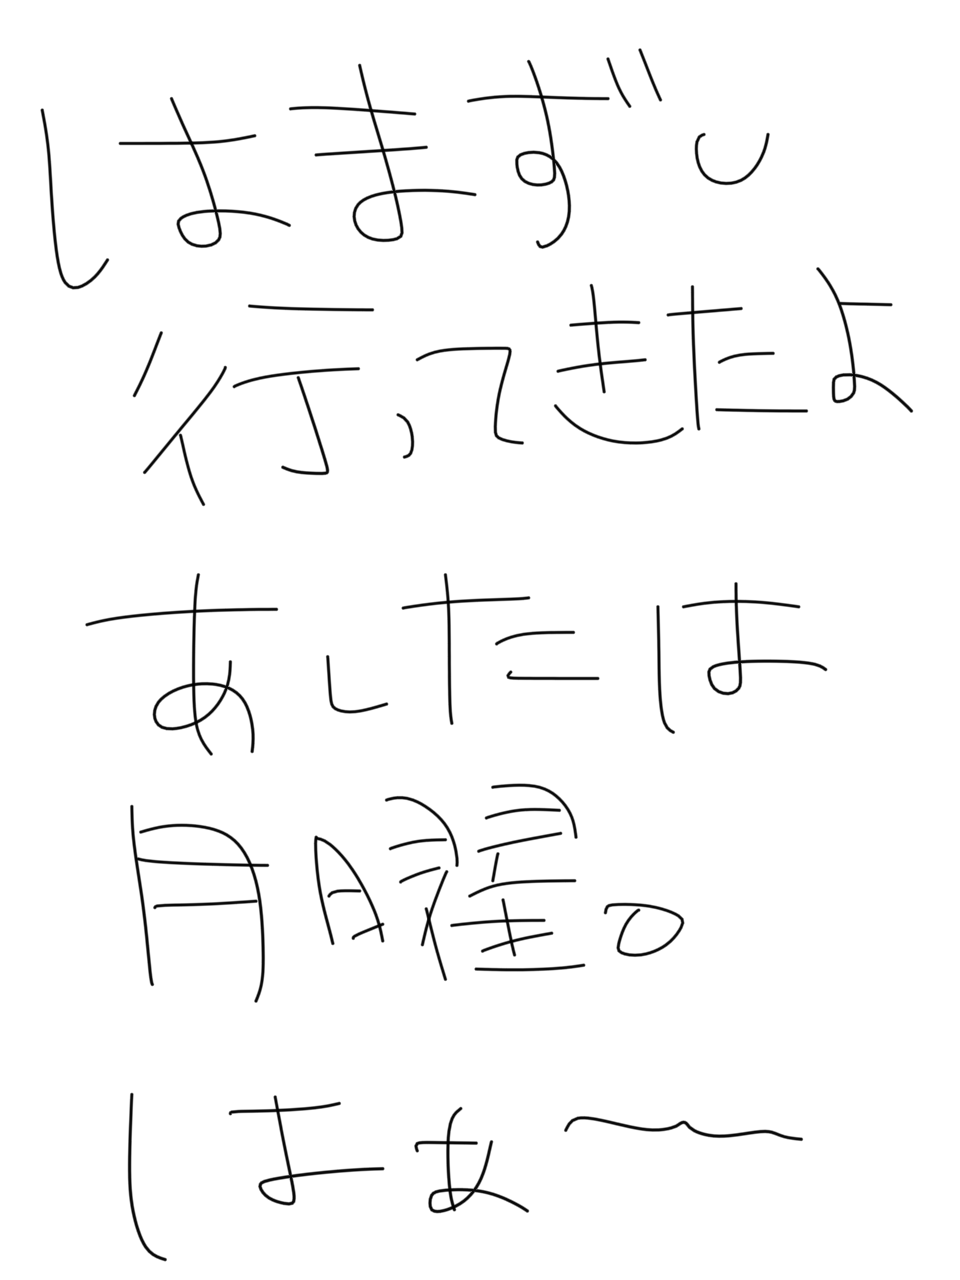 はまずし
行ってきたよ
あしたは
月曜。
はぁ〜